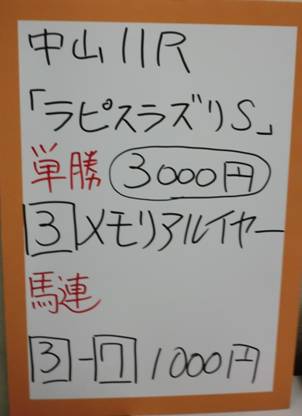 中山11R
「ラピスラズリS」
単勝 3000円
3 メモリアルイヤー
馬連
3-7 1000円